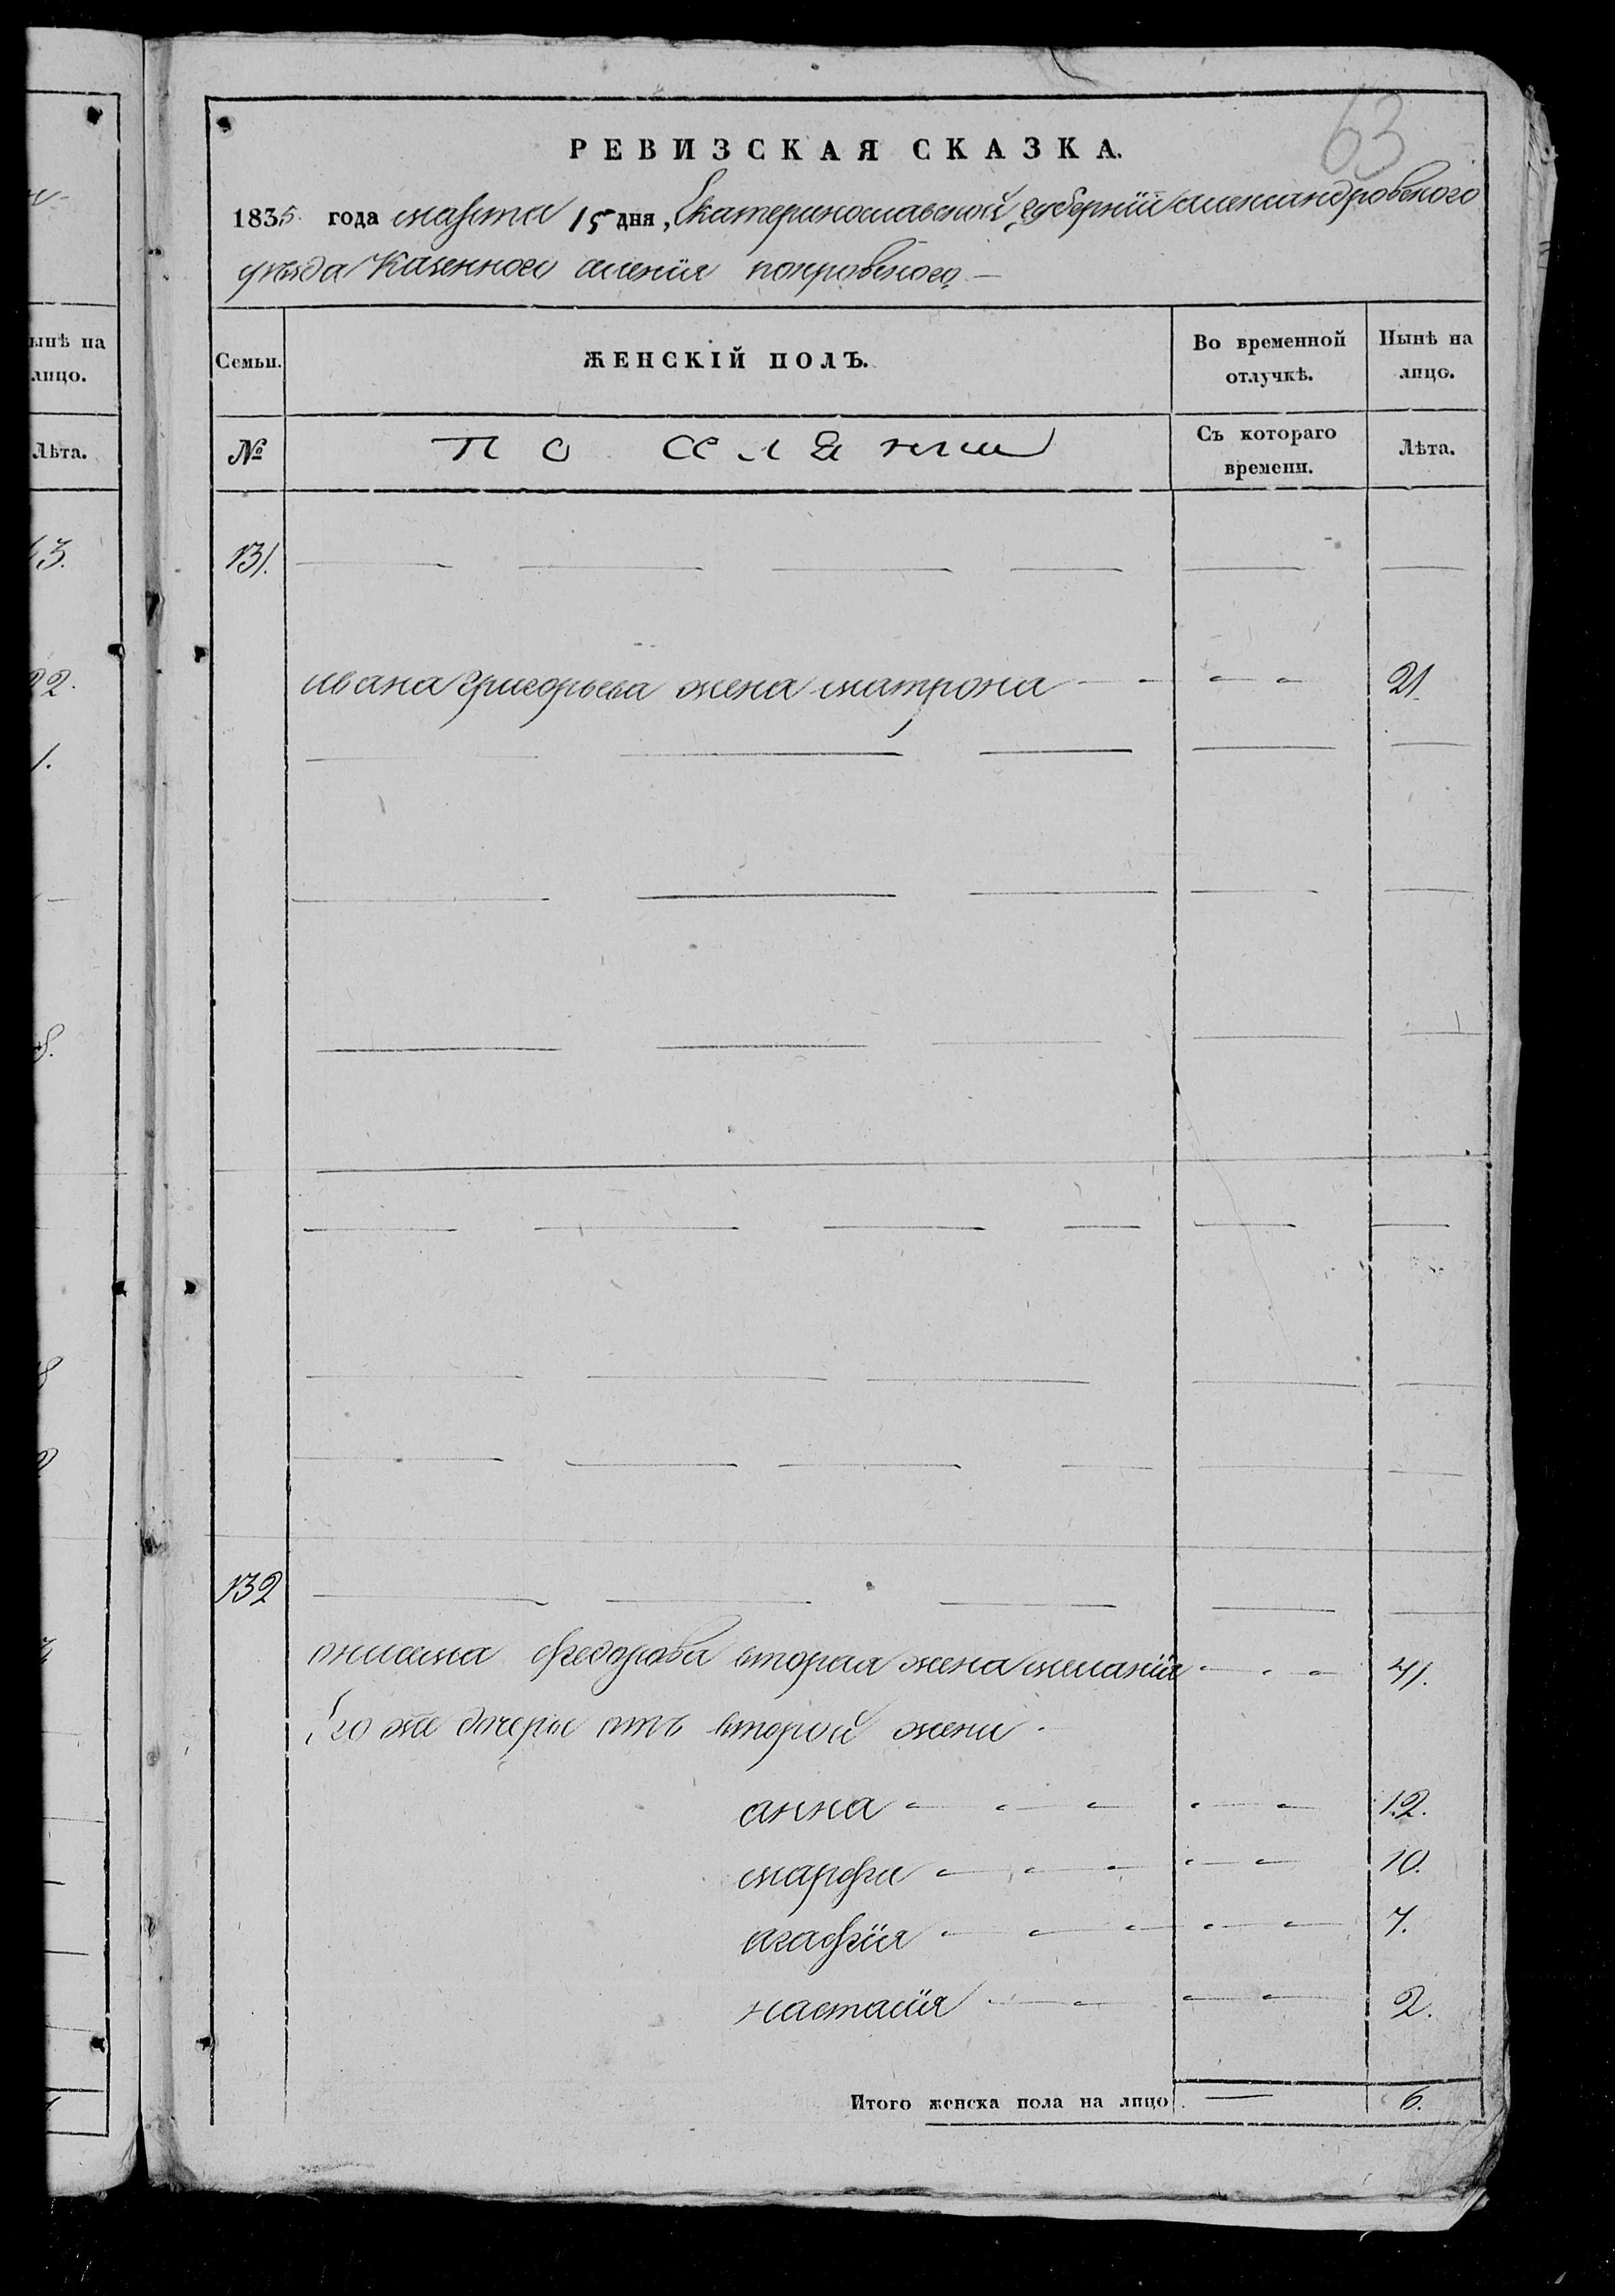 63
РЕВИЗСКАЯ СКАЗКА.
1835 года марта 15 дня, Екатеринославской губернїи александровского
уезда Казенного селенїя покровского
Семьи. ЖЕНСКІЙ ПОЛЪ. Во временной отлучкѣ. Нынѣ на лицо.
№ поселяни Съ котораго времени. Лѣта.
131.
ивана григорьева жена матрона 21
132
онисима федорова вторая жена меланїя 41.
Его же дочери отъ второй жени
анна 12.
марфа 10.
агафїя 7.
настасїя 2.
Итого женска пола на лицо 6.
ынѣ на
лицо.
Лѣта.